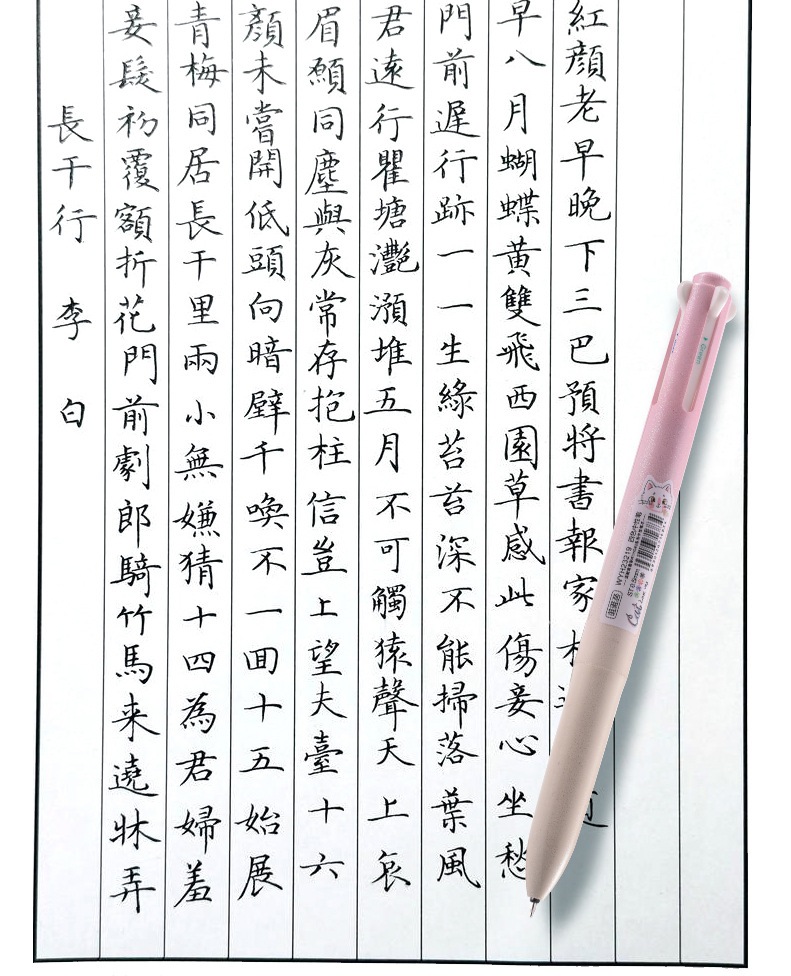 長干行 李白
妾髮初覆額折花門前劇郎騎竹馬来遶牀弄
青梅同居長干里兩小無嫌猜十四為君婦羞
顏未嘗開低頭向暗壁千喚不一回十五始展
眉願同塵與灰常存抱柱信豈上望夫臺十六
君遠行瞿塘灩澦堆五月不可觸猿聲天上哀
門前遲行跡一一生綠苔苔深不能掃落葉風
早八月蝴蝶黃雙飛西園草感此傷妾心坐愁
紅顏老早晚下三巴預將書報家
WYH23219